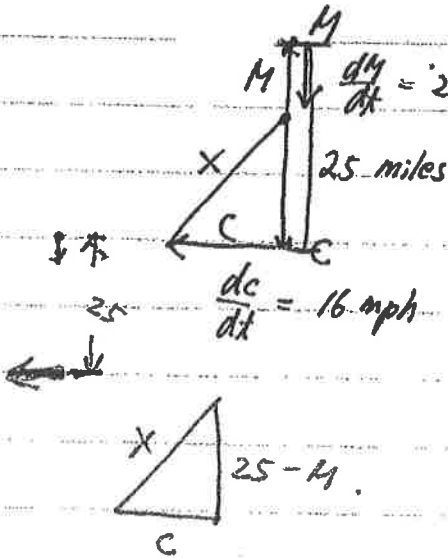 M
M dM/dt = 2
X 25 miles
C C
25 dc/dt = 16 mph
X 25 - M.
C